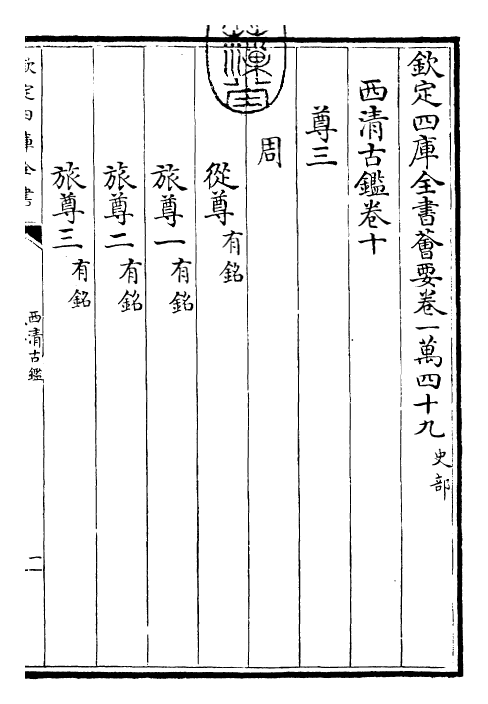 欽定四庫全書薈要卷一萬四十九 史部
西清古鑑卷十
尊三
周
從尊 有銘
旅尊一 有銘
旅尊二 有銘
旅尊三 有銘
欽定四庫全書
西清古鑑
一